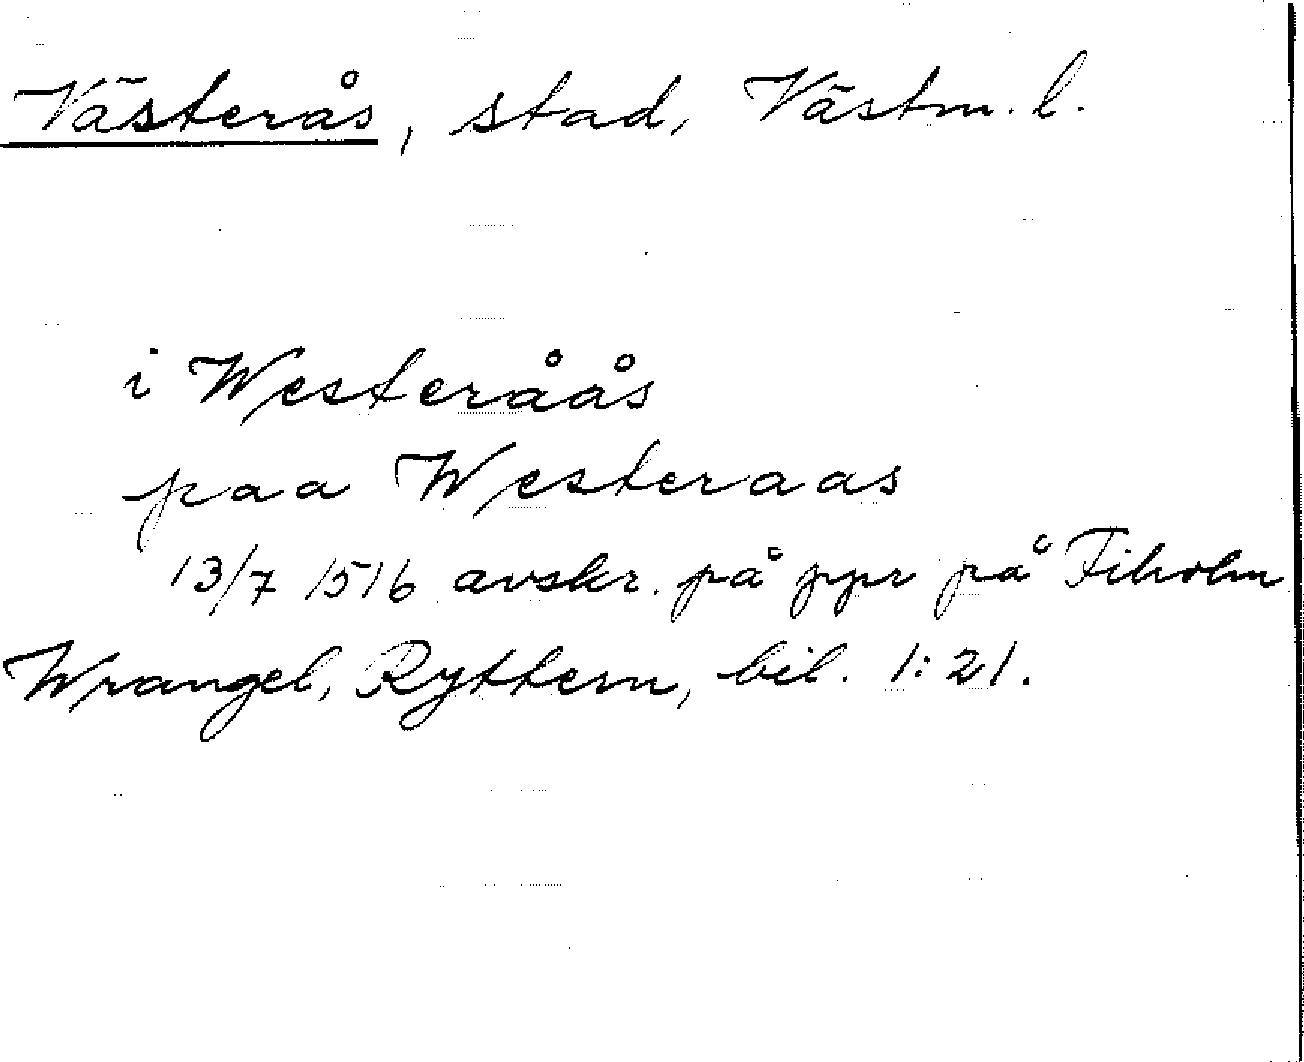 Västerås, stad, Västm. l.
i Westeråås
paa Westeraas
13/7 1516 avskr. på ppr på Fiholm
Wrangel, Ryttern, bil. 1:21.